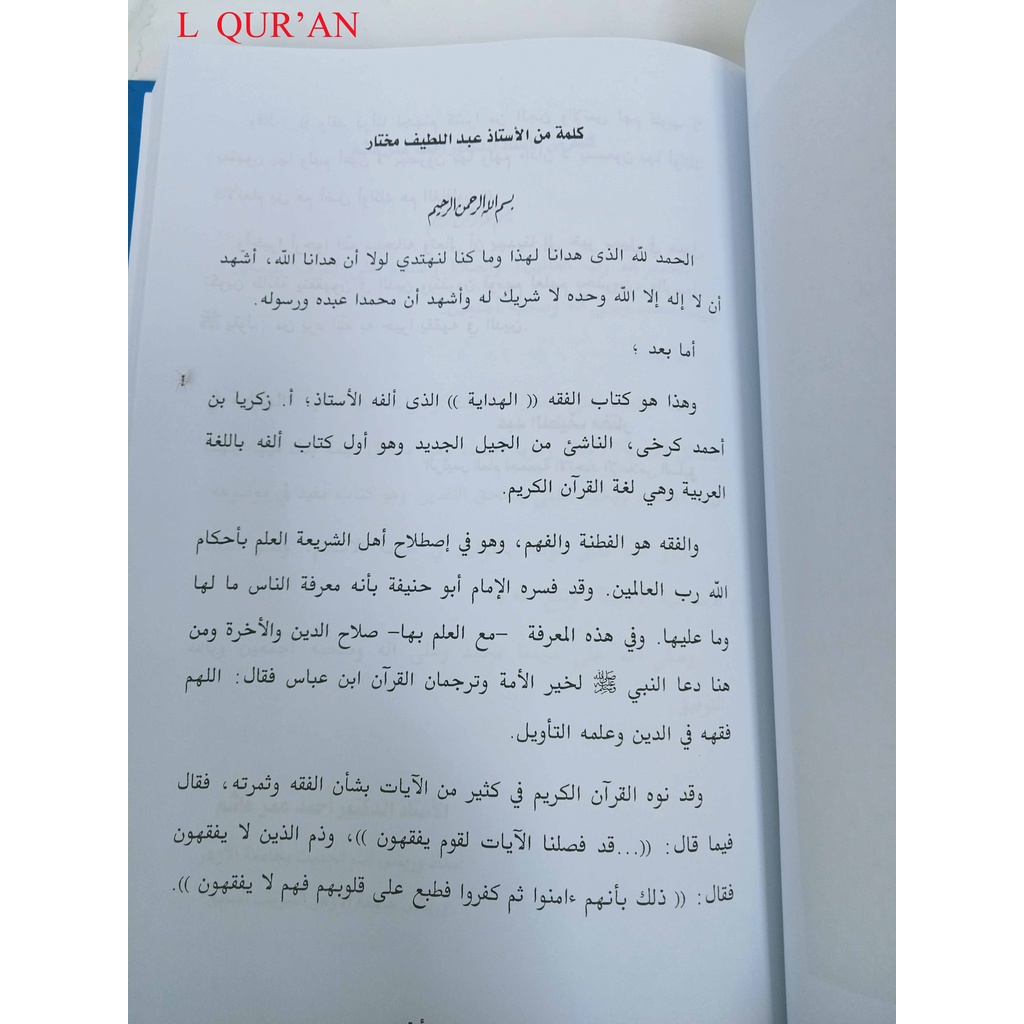 L QUR’AN
كلمة من الأستاذ عبد اللطيف مختار
بسم الله الرحمن الرحيم
الحمد لله الذى هدانا لهذا وما كنا لنهتدي لولا أن هدانا الله، أشهد
أن لا إله إلا الله وحده لا شريك له وأشهد أن محمدا عبده ورسوله.
أما بعد ؛
وهذا هو كتاب الفقه (( الهداية )) الذى ألفه الأستاذ؛ أ. زكريا بن
أحمد كرخى، الناشئ من الجيل الجديد وهو أول كتاب ألفه باللغة
العربية وهي لغة القرآن الكريم.
والفقه هو الفطنة والفهم، وهو في إصطلاح أهل الشريعة العلم بأحكام
الله رب العالمين. وقد فسره الإمام أبو حنيفة بأنه معرفة الناس ما لها
وما عليها. وفي هذه المعرفة –مع العلم بها– صلاح الدين والأخرة ومن
هنا دعا النبي ﷺ لخير الأمة وترجمان القرآن ابن عباس فقال: اللهم
فقهه في الدين وعلمه التأويل.
وقد نوه القرآن الكريم في كثير من الآيات بشأن الفقه وثمرته، فقال
فيما قال: ((...قد فصلنا الآيات لقوم يفقهون ))، وذم الذين لا يفقهون
فقال: (( ذلك بأنهم ءامنوا ثم كفروا فطبع على قلوبهم فهم لا يفقهون )).